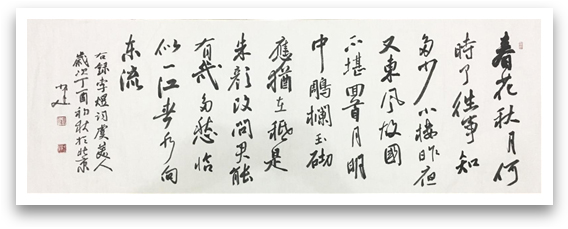 春花秋月何
時了往事知
多少小樓昨夜
又東風故國
不堪回首月明
中雕欄玉砌
應猶在祗是
朱顏改問君能
有幾多愁恰
似一江春水向
东流
右録李煜词虞美人
歲次丁酉初秋於北京